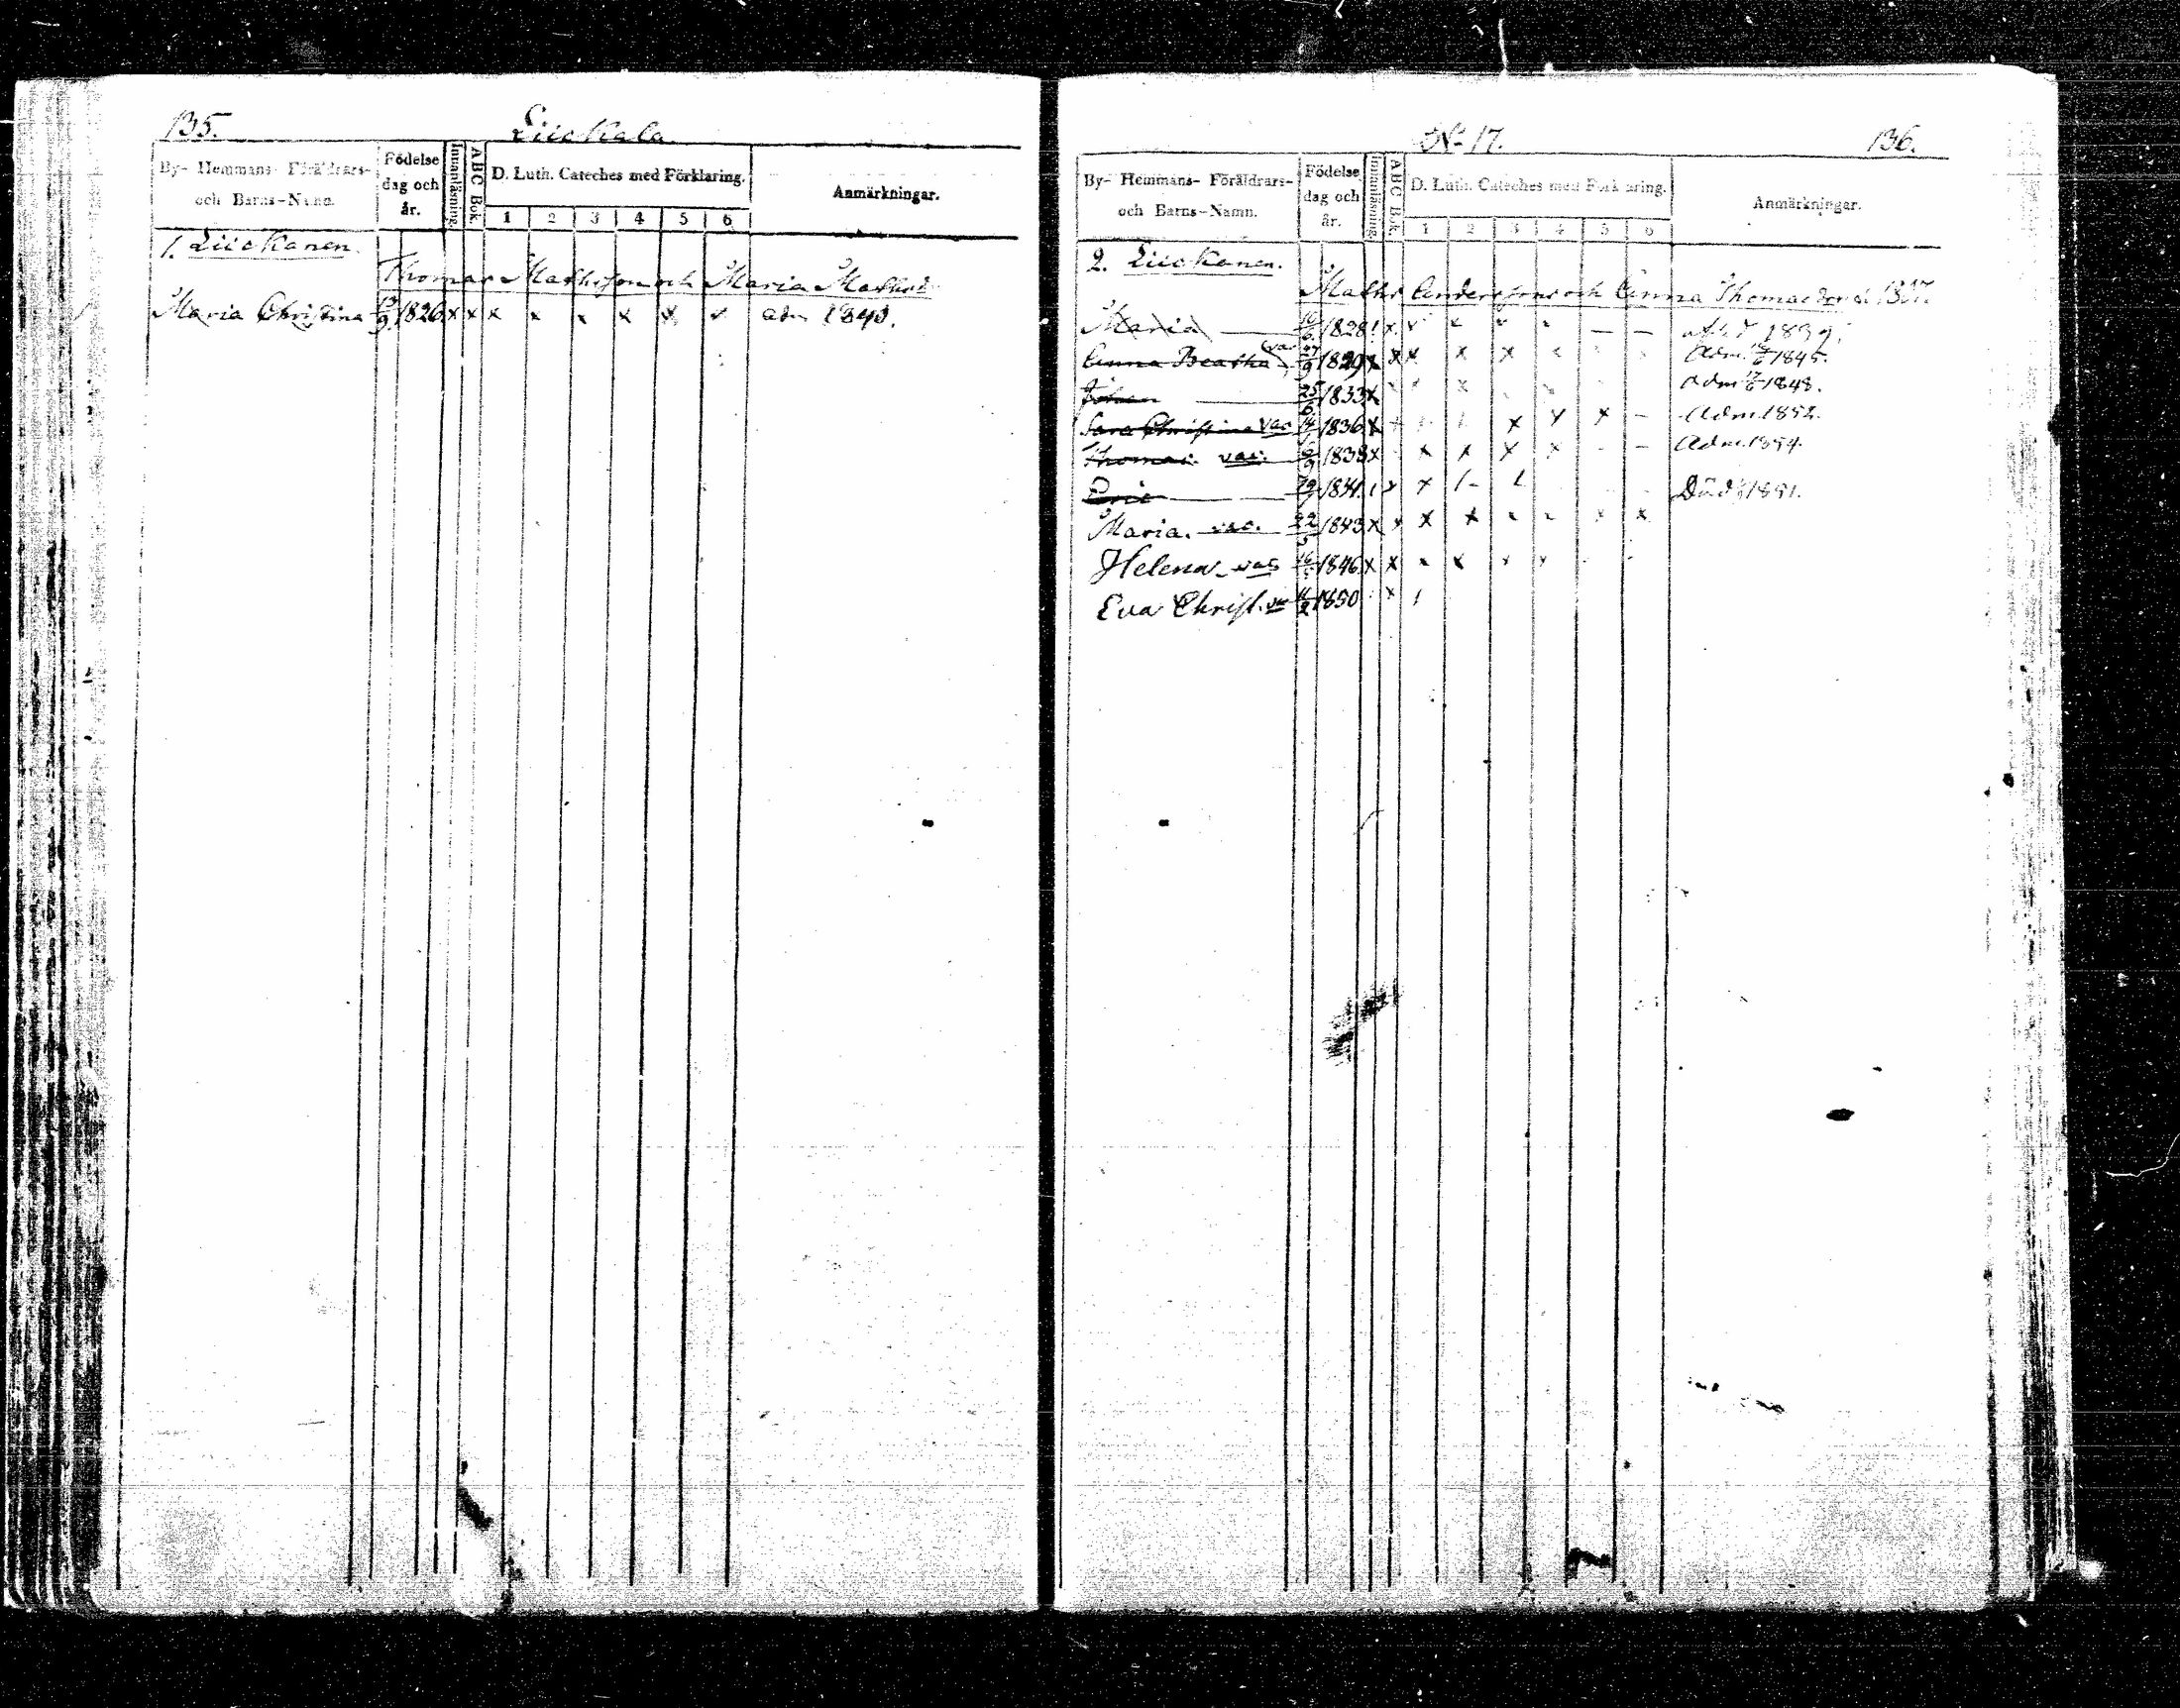 135. Liickala
By- Hemmans- Föräldrars- och Barns-Namn. Födelse dag och år. Innanläsning. ABC Bok. D. Luth. Cateches med Förklaring. 1 2 3 4 5 6 Anmärkningar.
1. Liickanen.
Thomas Mathsson och Maria Mathsd.
Maria Christina 13/9 1826 x x x x x x x x adm 1843.
No 17. 136.
By- Hemmans- Föräldrars- och Barns-Namn. Födelse dag och år. Innanläsning. ABC Bok. D. Luth. Cateches med Förklaring. 1 2 3 4 5 6 Anmärkningar.
2. Liickanen.
Maths Anderssons och Anna Thomasdr
Maria 1828 1839.
Anna Beatha vac 1829 x x x x x Adm. 1845.
Johan 25/6 1833 x adm 1848.
Sara Christina vac 1836 x x x x – Adm. 1852.
Thomas. vac. 1838 x x x x x – – Adm. 1854.
Eric 1841. x x Död 1851.
Maria. vac. 22/5 1843 x x x x x x x x
Helena vac 16 1846 x x x x x x
Eva Christ. vac 11/2 1850 x